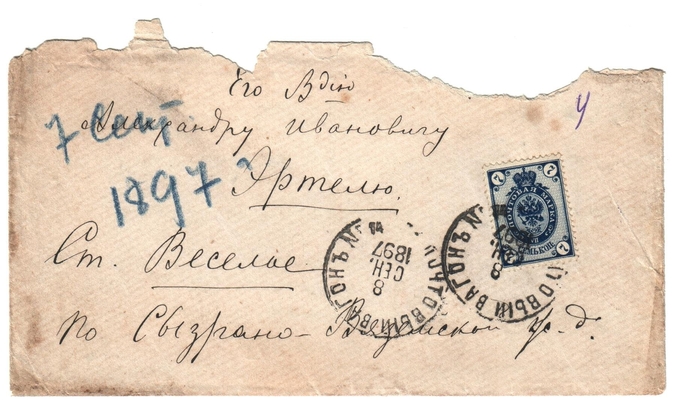 Его Вдiю
Александру Ивановичу
Эртелю.
Ст. Веселое
по Сызрано-Вяземской ж. д.
7 Сент
1897
ПОЧТОВЫЙ ВАГОНЪ №
8
СЕН.
1897
ПОЧТОВАЯ МАРКА
7
7
СЕМЬ КОП.
ПОЧТОВЫЙ ВАГОНЪ №
8
1897